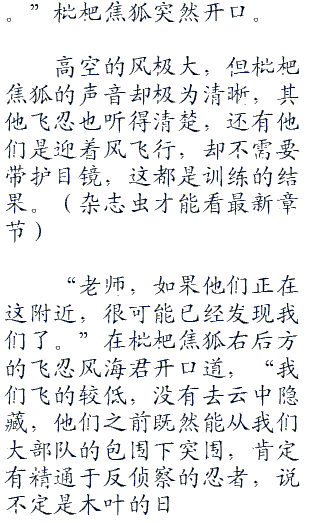 。”枇杷焦狐突然开口。
高空的风极大，但枇杷
焦狐的声音却极为清晰，其
他飞忍也听得清楚，还有他
们是迎着风飞行，却不需要
带护目镜，这都是训练的结
果。（杂志虫才能看最新章
节）
“老师，如果他们正在
这附近，很可能已经发现我
们了。”在枇杷焦狐右后方
的飞忍风海君开口道，“我
们飞的较低，没有去云中隐
藏，他们之前既然能从我们
大部队的包围下突围，肯定
有精通于反侦察的忍者，说
不定是木叶的日